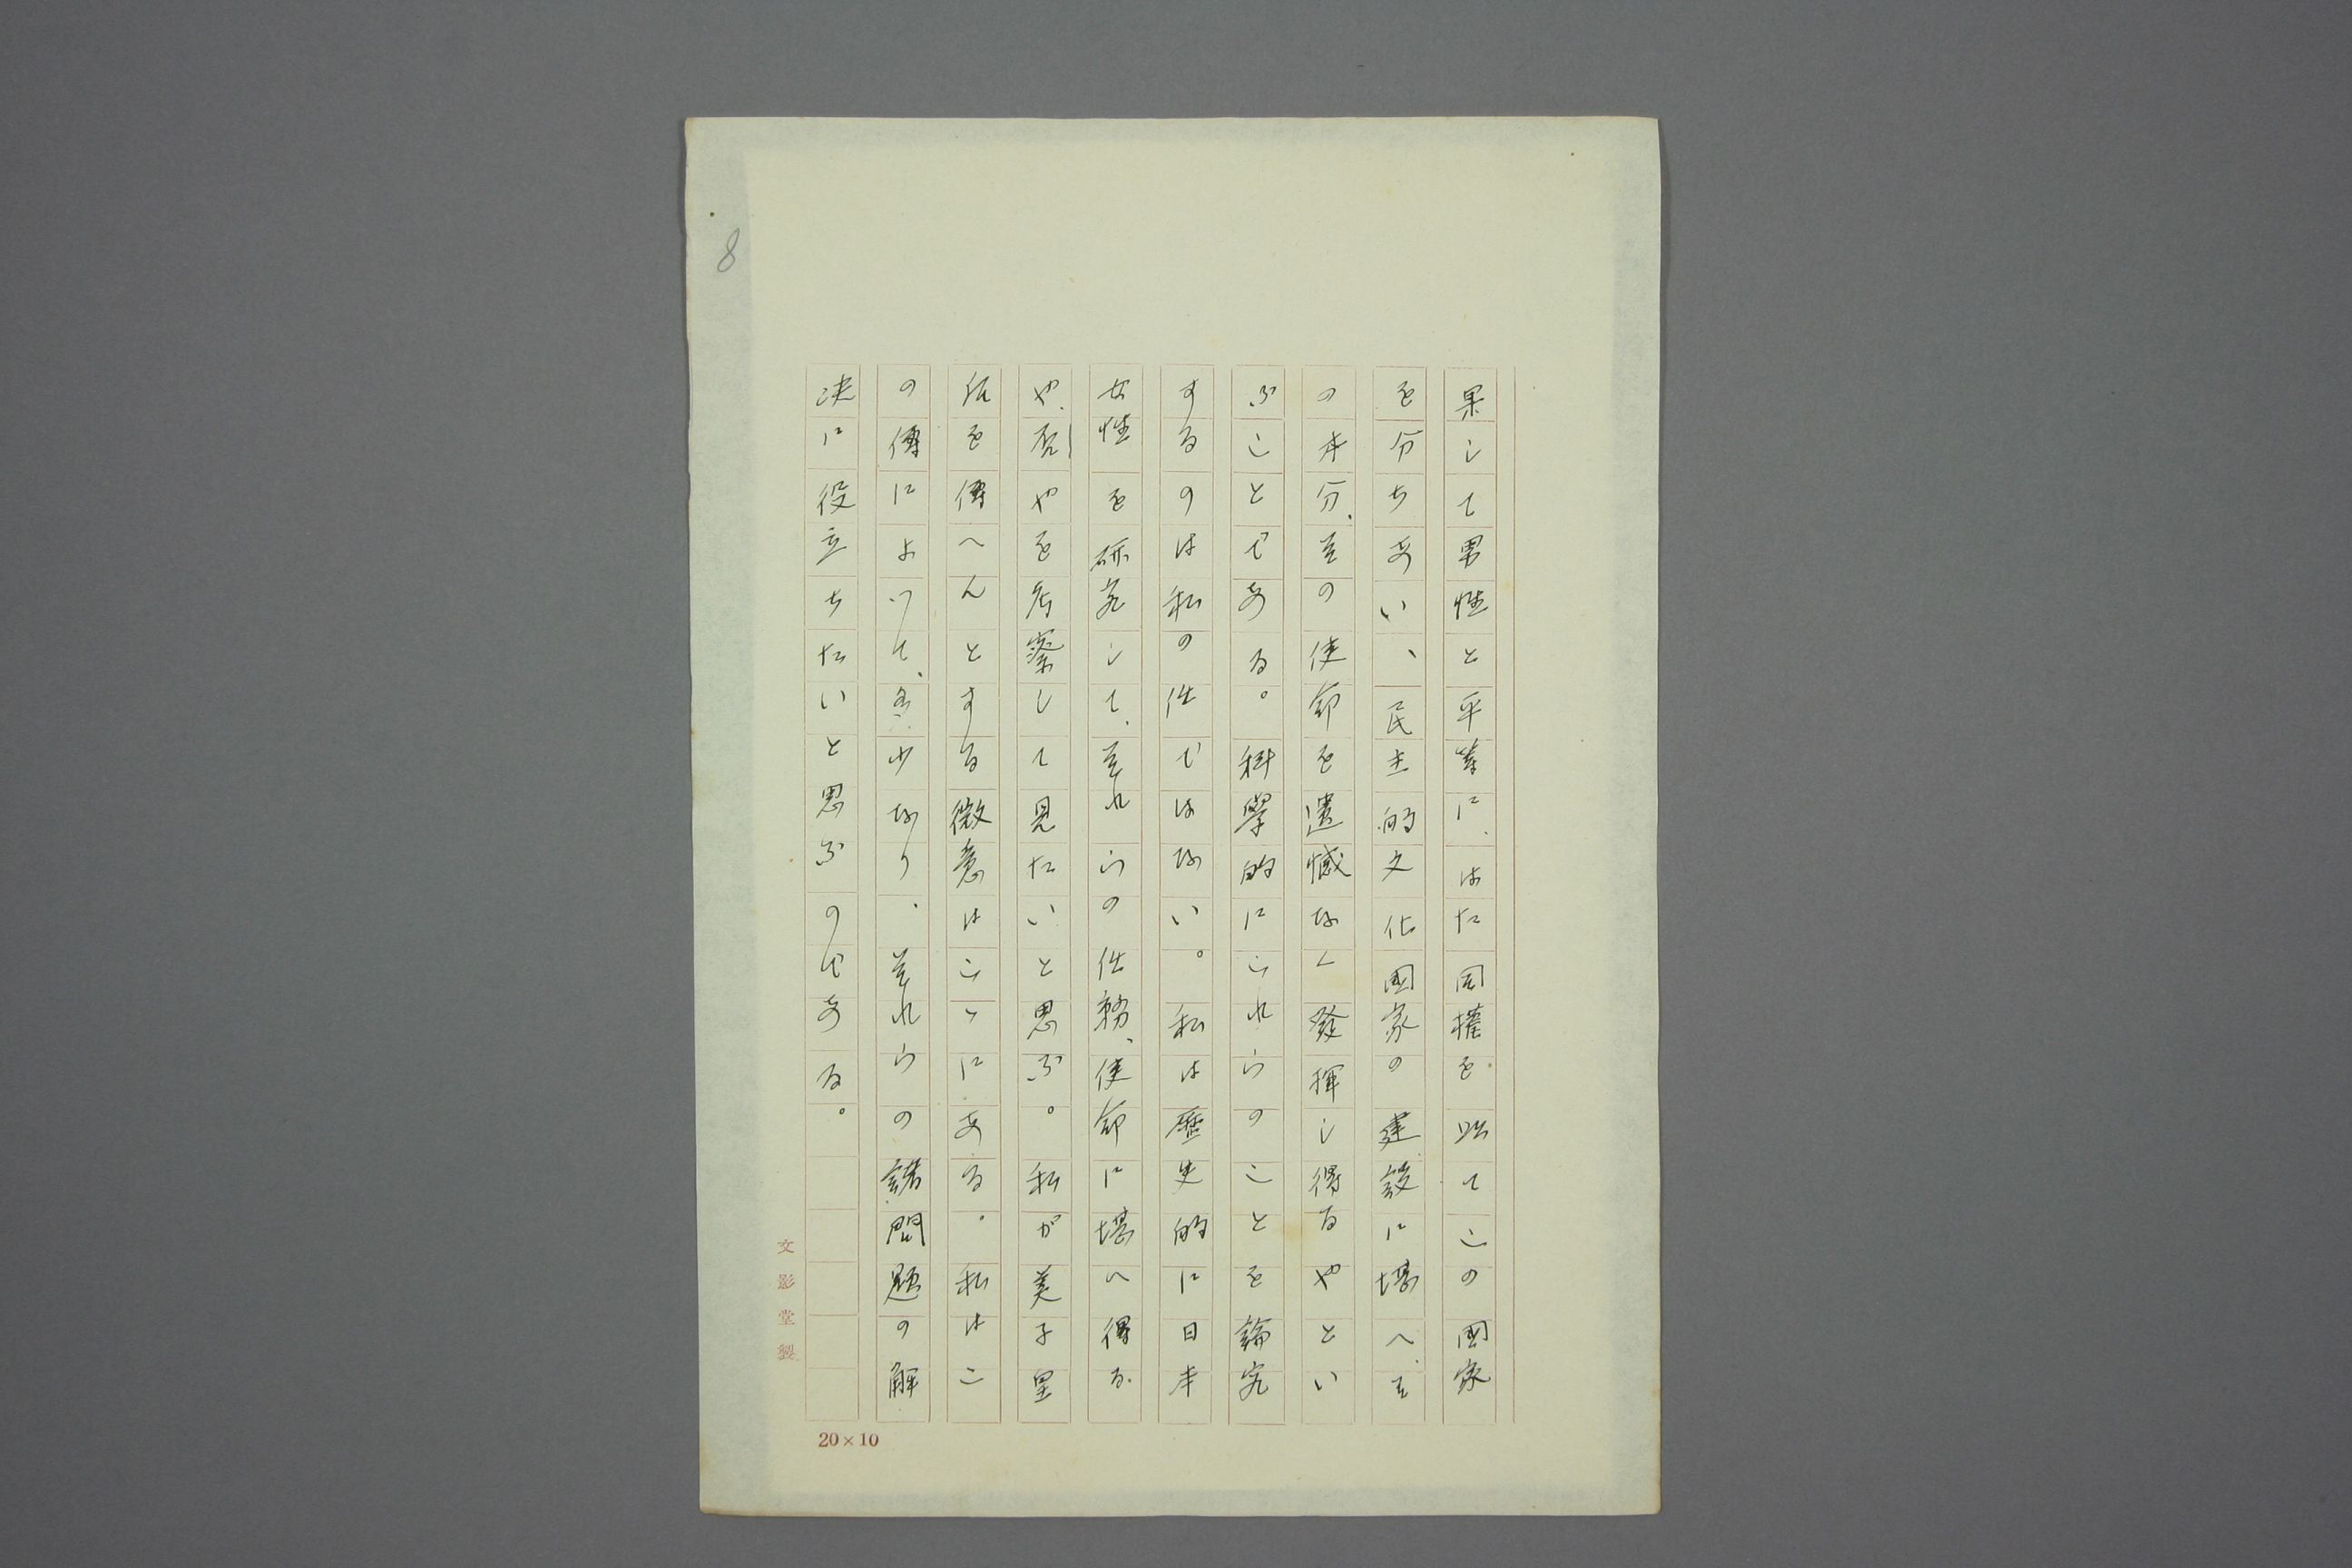 果して男性と平等に、はた同權を以てこの國家
を分ち あい、民主的文化國家の建設に堪へ、其
の本分、其の使命を遺憾なく發揮し得るやとい
ふことである。科學的にこれらのことを論究
するのは私の仕ではない。私は歴史的に日本
女性を研究して、其れらの任務、使命に堪へ得る
や、否やを考察して見たいと思ふ。私が美子皇
后を傳へんとする微意はこゝにある。私はこ
の傳によつて、多少なり、其れらの諸問題の解
決に役立ちたいと思ふのである。
8
文影堂製
20×10